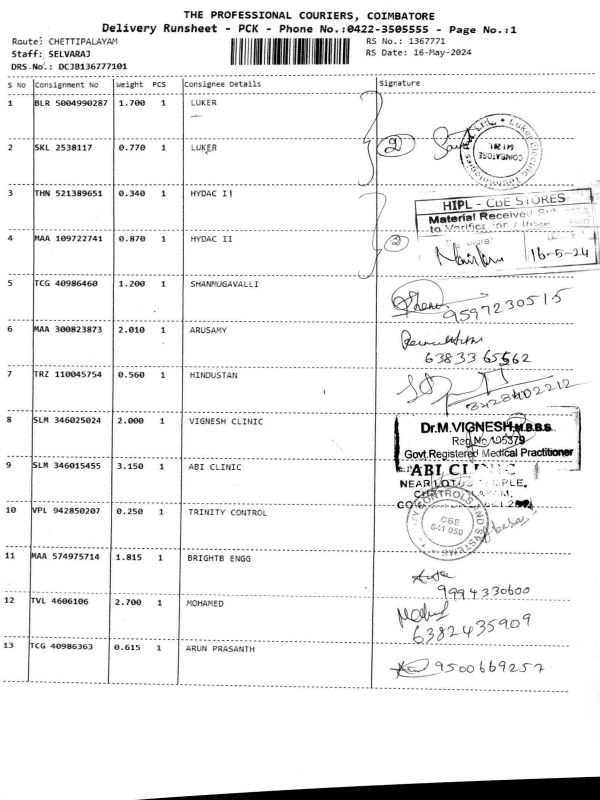 THE PROFESSIONAL COURIERS, COIMBATORE
Delivery Runsheet - PCK - Phone No.:0422-3505555 - Page No.:1
Route: CHETTIPALAYAM
RS No.: 1367771
Staff: SELVARAJ
RS Date: 16-May-2024
DRS No.: DCJB136777101
S No Consignment No Weight PCS Consignee Details Signature
1 BLR 5004990287 1.700 1 LUKER
2 SKL 2538117 0.770 1 LUKER
2
Luker Electric Technologies Ltd.
COIMBATORE
641 201
3 THN 521389651 0.340 1 HYDAC II
HIPL - CBE STORES
Material Received
to Verification /
4 MAA 109722741 0.870 1 HYDAC II
2
16-5-24
5 TCG 40986460 1.200 1 SHANMUGAVALLI
9597230515
6 MAA 300823873 2.010 1 ARUSAMY
6383365562
7 TRZ 110045754 0.560 1 HINDUSTAN
8428402212
8 SLM 346025024 2.000 1 VIGNESH CLINIC
Dr.M.VIGNESH,M.B.B.S
Reg.No 105379
Govt.Registered Medical Practitioner
9 SLM 346015455 3.150 1 ABI CLINIC
ABI CLINIC
NEAR LOTUS TEMPLE,
10 VPL 942850207 0.250 1 TRINITY CONTROL
CONTROLS AND SYSTEMS
CBE
641 050
11 MAA 574975714 1.815 1 BRIGHTB ENGG
9994330600
12 TVL 4606106 2.700 1 MOHAMED
6382435909
13 TCG 40986363 0.615 1 ARUN PRASANTH
9500669257